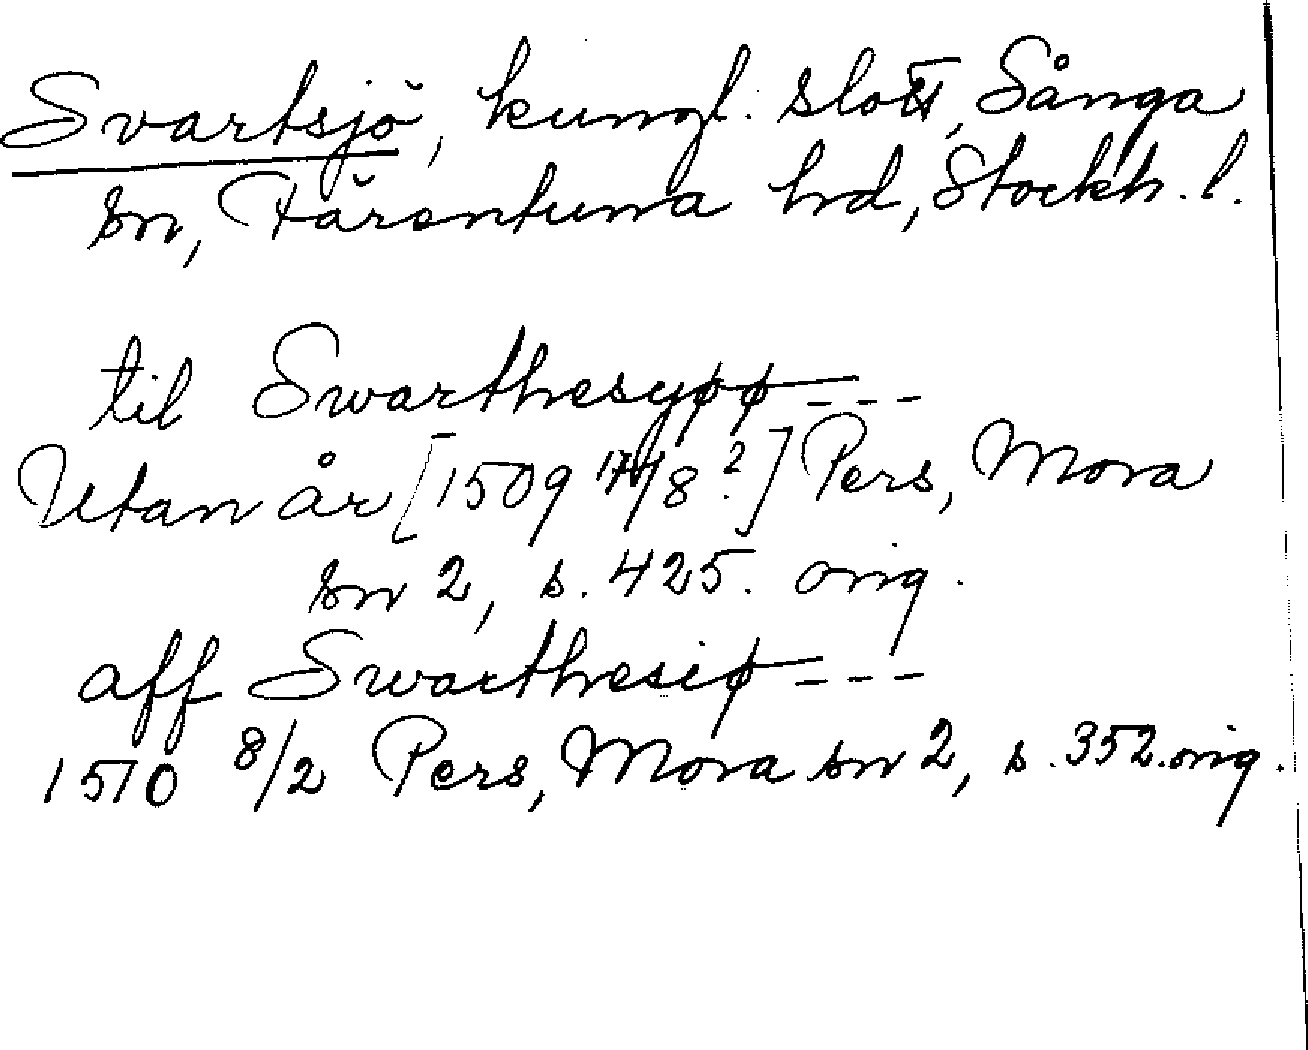 Svartsjö, kungl. slott, Sånga
sn, Färentuna hd, Stockh. l.
til Swarthesyøø ---
Utan år [1509 17/8 ?] Pers, Mora
sn 2, s. 425. orig.
aff Swarthesiø ---
1510 8/2 Pers, Mora sn 2, s. 352. orig.